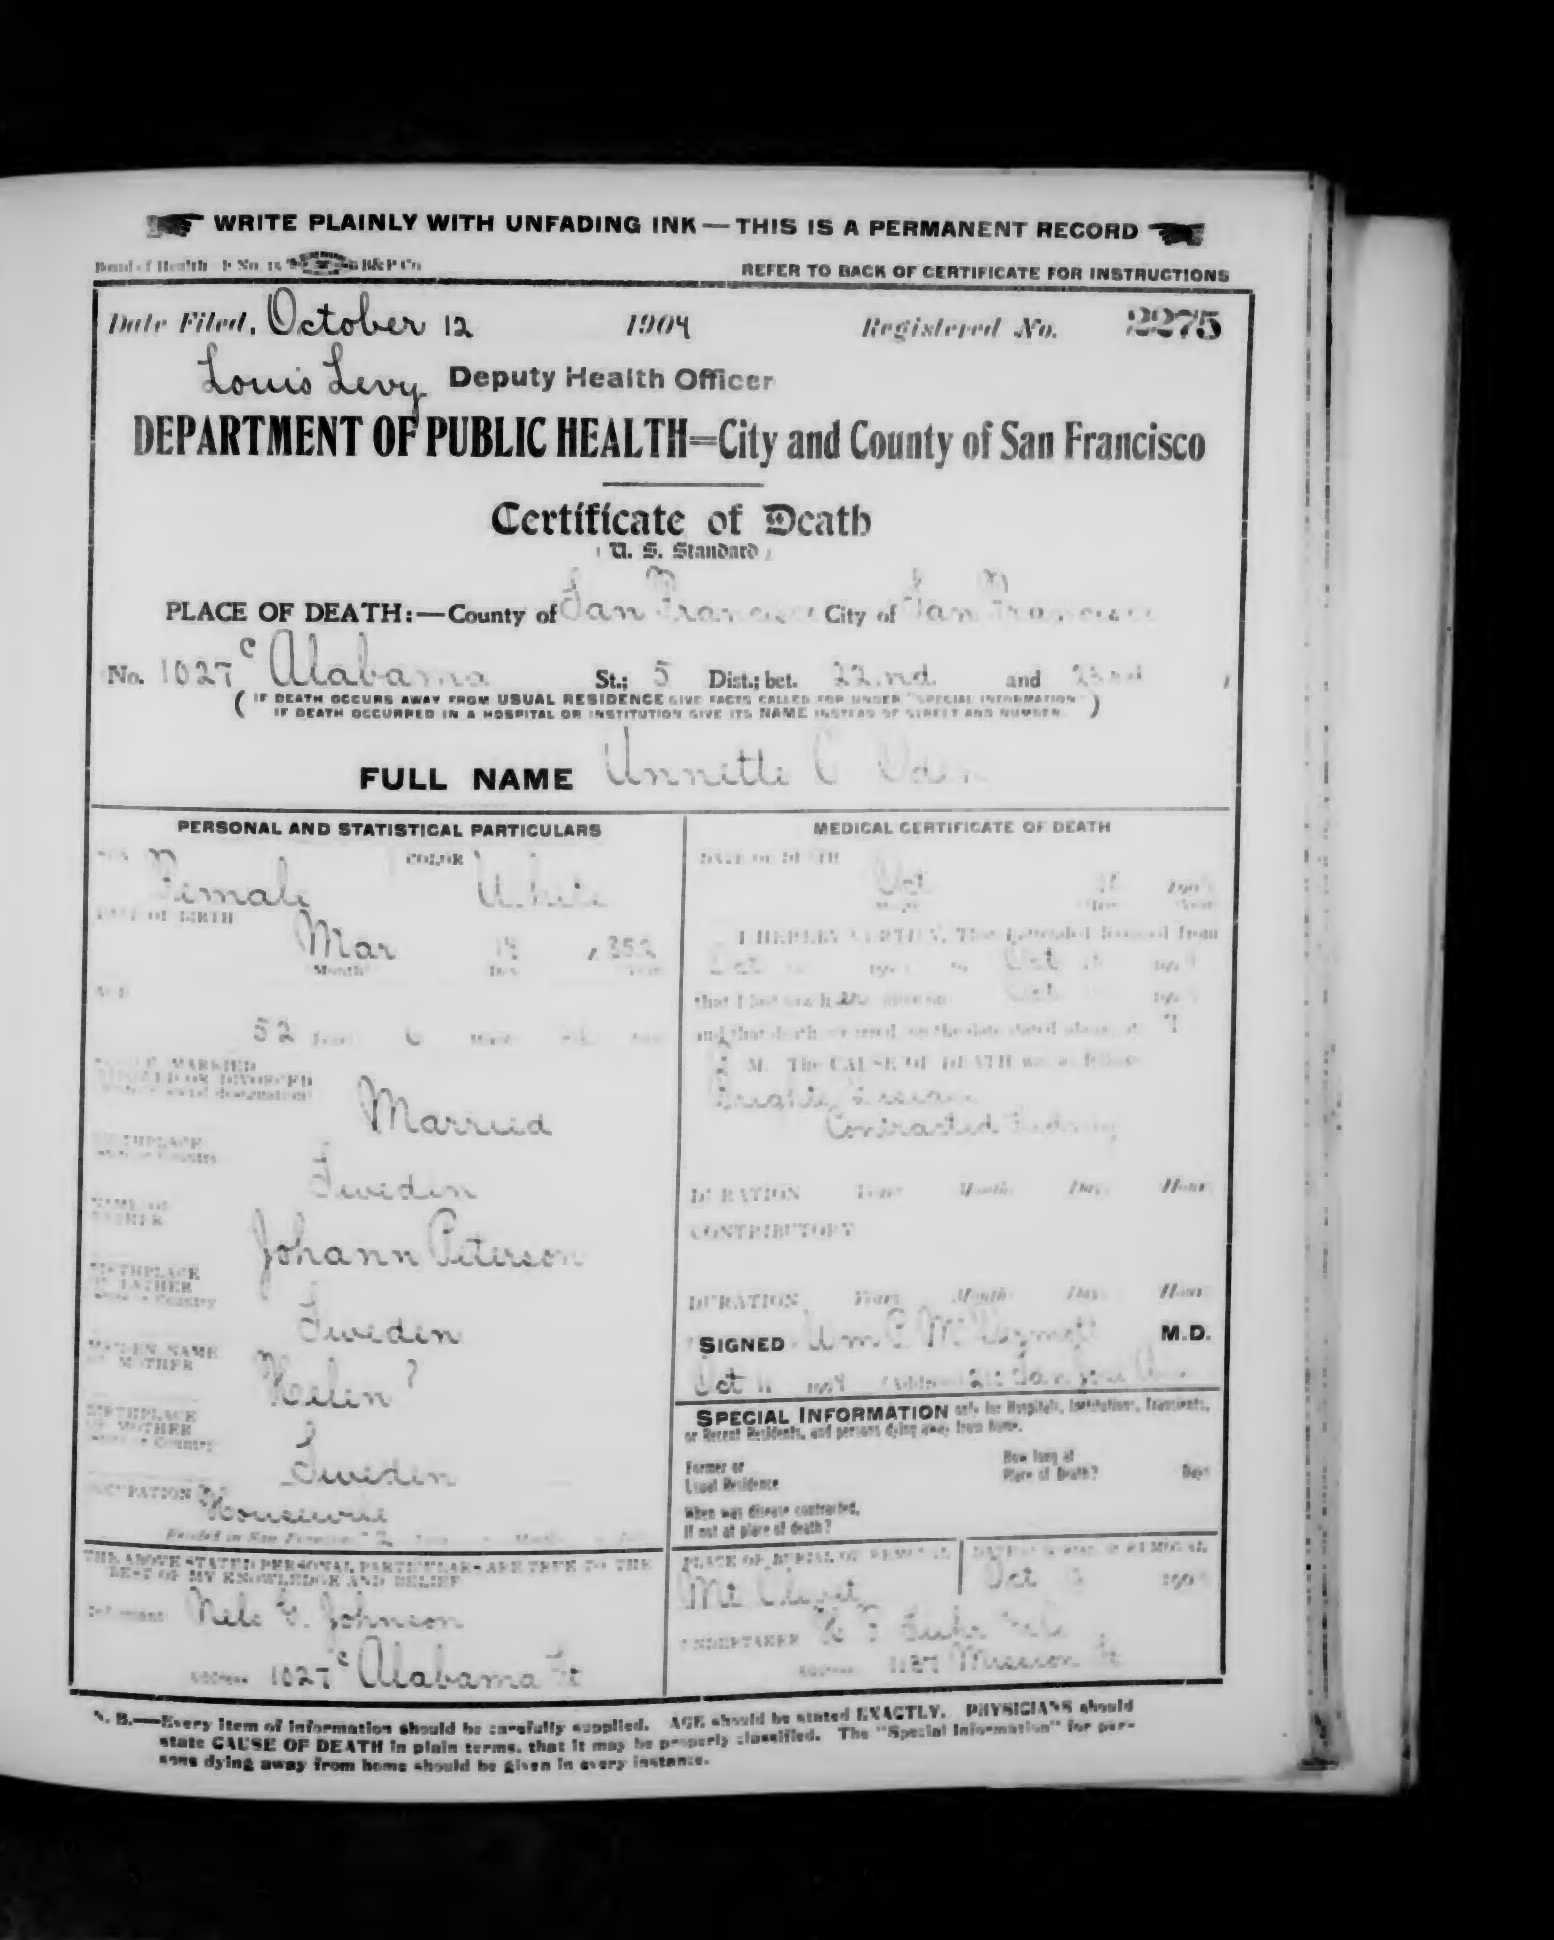 WRITE PLAINLY WITH UNFADING INK — THIS IS A PERMANENT RECORD
Board of Health F No. 15 B&P Co
REFER TO BACK OF CERTIFICATE FOR INSTRUCTIONS
Date Filed, October 12 1904 Registered No. 2275
Louis Levy Deputy Health Officer
DEPARTMENT OF PUBLIC HEALTH=City and County of San Francisco
Certificate of Death
( U. S. Standard )
PLACE OF DEATH:—County of San Francisco City of San Francisco
No. 1027 c Alabama St.; 5 Dist.; bet. 22nd and 23rd
( IF DEATH OCCURS AWAY FROM USUAL RESIDENCE GIVE FACTS CALLED FOR UNDER "SPECIAL INFORMATION"
IF DEATH OCCURRED IN A HOSPITAL OR INSTITUTION GIVE ITS NAME INSTEAD OF STREET AND NUMBER. )
FULL NAME Annette C Oden
PERSONAL AND STATISTICAL PARTICULARS
SEX Female COLOR White
DATE OF BIRTH
Mar 1852
Month Day Year
AGE
52 Years 6 Months Days
SINGLE MARRIED
WIDOWED OR DIVORCED
Married
BIRTHPLACE
State or Country
Sweden
NAME OF
FATHER
Johann Peterson
BIRTHPLACE
OF FATHER
State or Country
Sweden
MAIDEN NAME
OF MOTHER
Helen ?
BIRTHPLACE
OF MOTHER
State or Country
Sweden
OCCUPATION
Housewife
Resided in San Francisco Years Months Days
THE ABOVE STATED PERSONAL PARTICULARS ARE TRUE TO THE
BEST OF MY KNOWLEDGE AND BELIEF
Informant Nels G. Johnson
Address 1027 c Alabama St
MEDICAL CERTIFICATE OF DEATH
DATE OF DEATH
Oct 11 1904
Month Day Year
I HEREBY CERTIFY, That I attended deceased from
Oct 190 to Oct 1904
that I last saw her alive on Oct 1904
and that death occurred, on the date stated above, at 7
M. The CAUSE OF DEATH was as follows:
Brights Disease
Contracted Kidney
DURATION Years Months Days Hours
CONTRIBUTORY
DURATION Years Months Days Hours
SIGNED Wm M.D.
Oct 11 1904 (Address) San Jose Ave
SPECIAL INFORMATION only for Hospitals, Institutions, Transients,
or Recent Residents, and persons dying away from home.
Former or
Usual Residence
How long at
Place of Death? Days
When was disease contracted,
If not at place of death?
PLACE OF BURIAL OR REMOVAL
Mt Olivet
DATE OF BURIAL OR REMOVAL
Oct 1904
UNDERTAKER
Address 1137 Mission St
N. B.—Every item of information should be carefully supplied. AGE should be stated EXACTLY. PHYSICIANS should
state CAUSE OF DEATH in plain terms, that it may be properly classified. The "Special Information" for per-
sons dying away from home should be given in every instance.